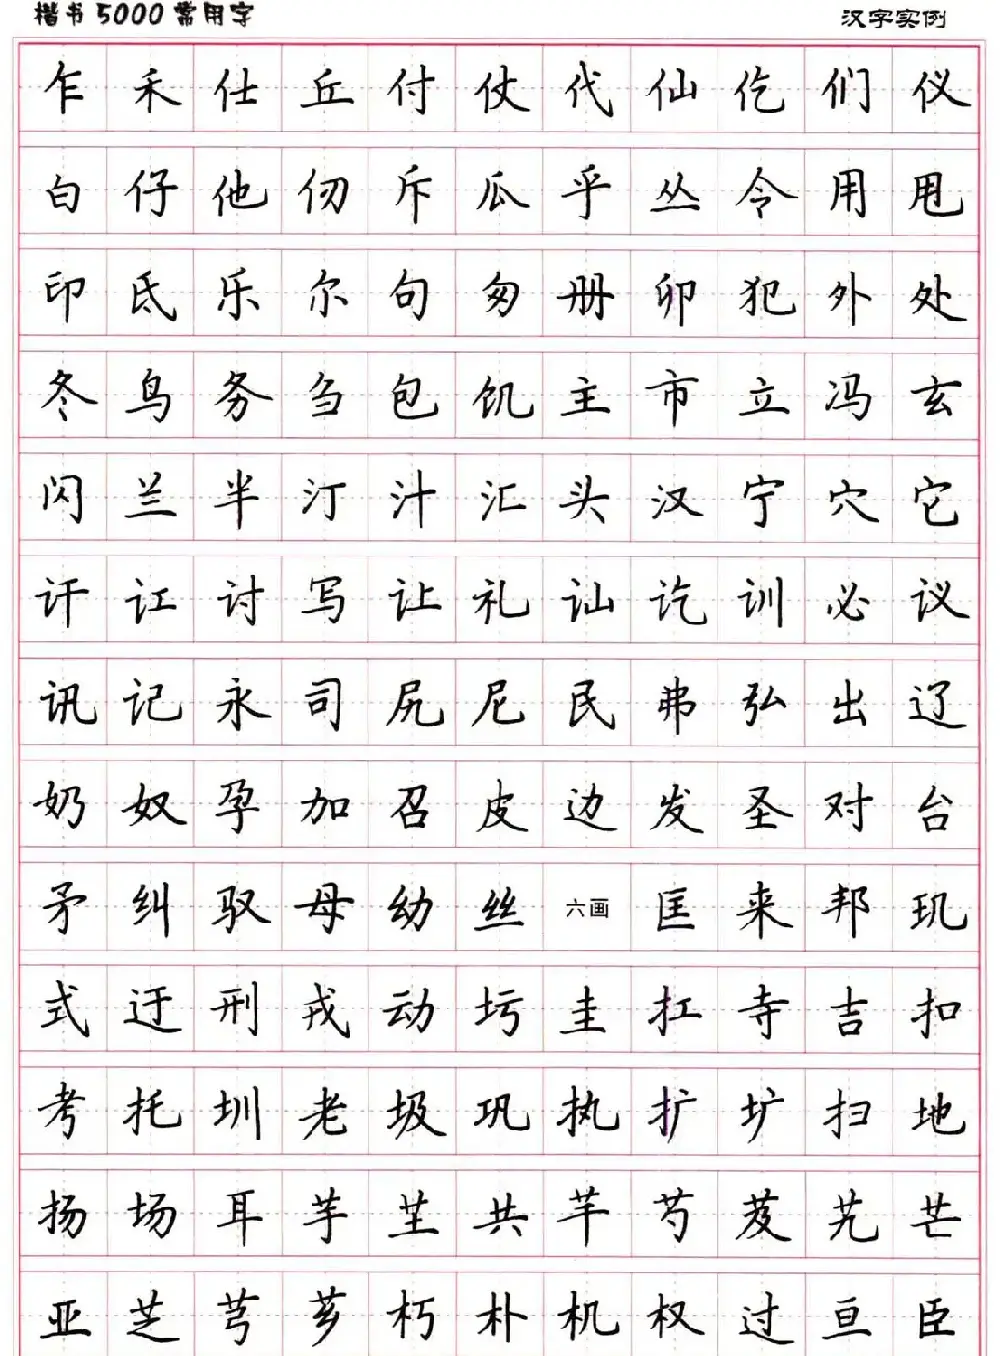 楷书5000常用字 汉字实例
乍禾仕丘付仗代仙仡们仪
白仔他仞斥瓜乎丛令用甩
印氐乐尔句匆册卯犯外处
冬鸟务刍包饥主市立冯玄
闪兰半汀汁汇头汉宁穴它
讦讧讨写让礼讪讫训必议
讯记永司尻尼民弗弘出辽
奶奴孕加召皮边发圣对台
矛纠驭母幼丝六画匡耒邦玑
式迂刑戎动圬圭扛寺吉扣
考托圳老圾巩执扩圹扫地
扬场耳芋芏共芊芍芨芄芒
亚芝芎芗朽朴机权过亘臣